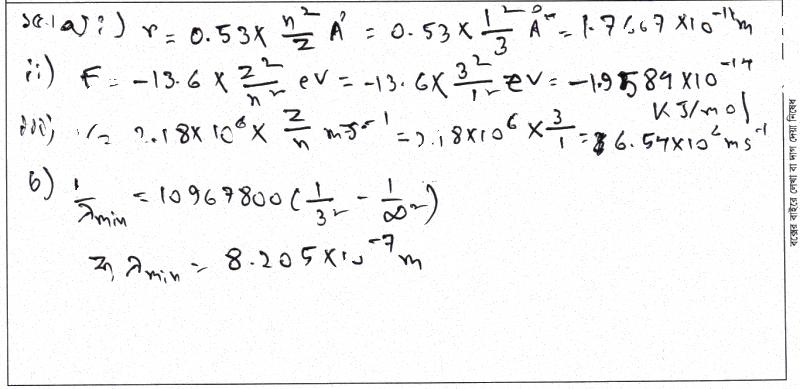 i) r = 0.53 × n²/Z Å = 0.53 × 1²/3 Å = 1.7667 × 10⁻¹¹ m
ii) E = -13.6 × Z²/n² eV = -13.6 × 3²/1² eV = -1.9584 × 10⁻¹⁷
KJ/mol
iii) V = 2.18 × 10⁶ × Z/n ms⁻¹ = 2.18 × 10⁶ × 3/1 = 6.54 × 10⁶ ms⁻¹
b) 1/λmin = 10967800 (1/3² - 1/∞²)
λmin = 8.205 × 10⁻⁷ m
বক্সের বাইরে লেখা বা দাগ দেয়া নিষেধ